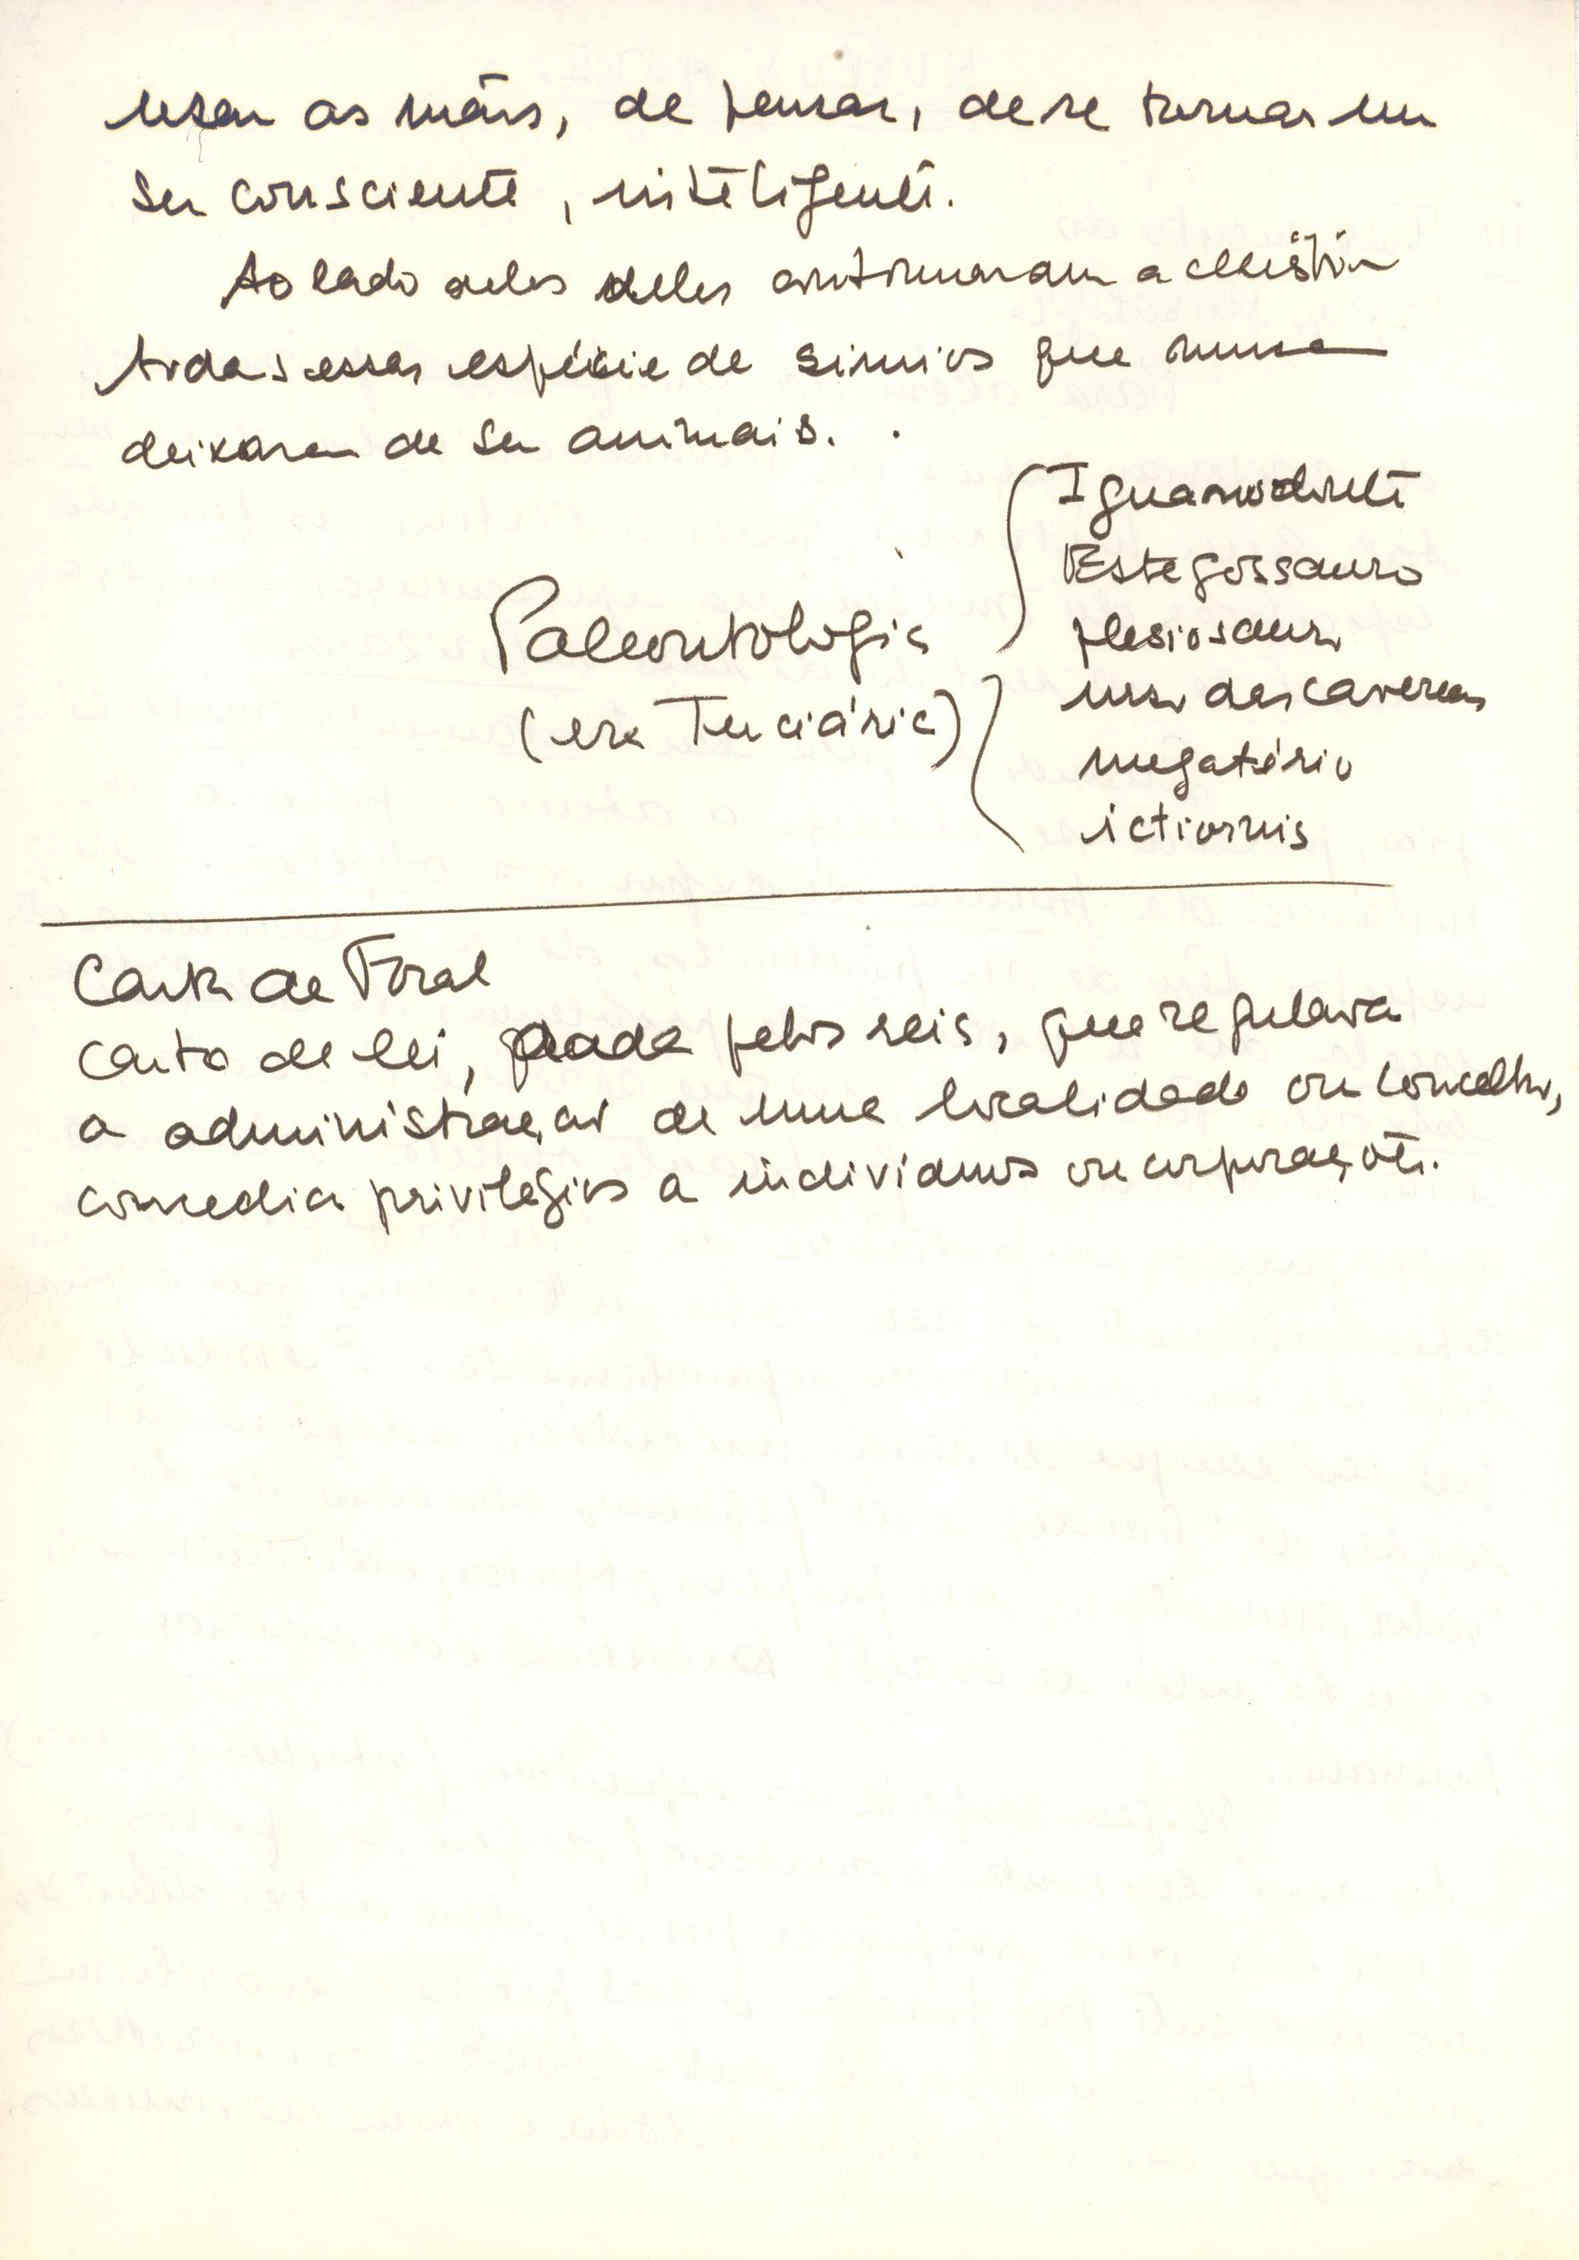 usar as mãos, de pensar, de se tornar um
ser consciente, inteligente.
Ao lado deles deles continuaram a existir
todas essas espécie de símios que nunca
deixaram de ser animais.
Paleontologia
(era Terciária)
Iguanodonte
Estegossauro
plesiosauro
urso das cavernas
megatério
ictiornis
Carta de Foral
Carta de lei, dada pelos reis, que regulava
a administração de uma localidade ou concelho,
concedia privilégios a indivíduos ou corporações.